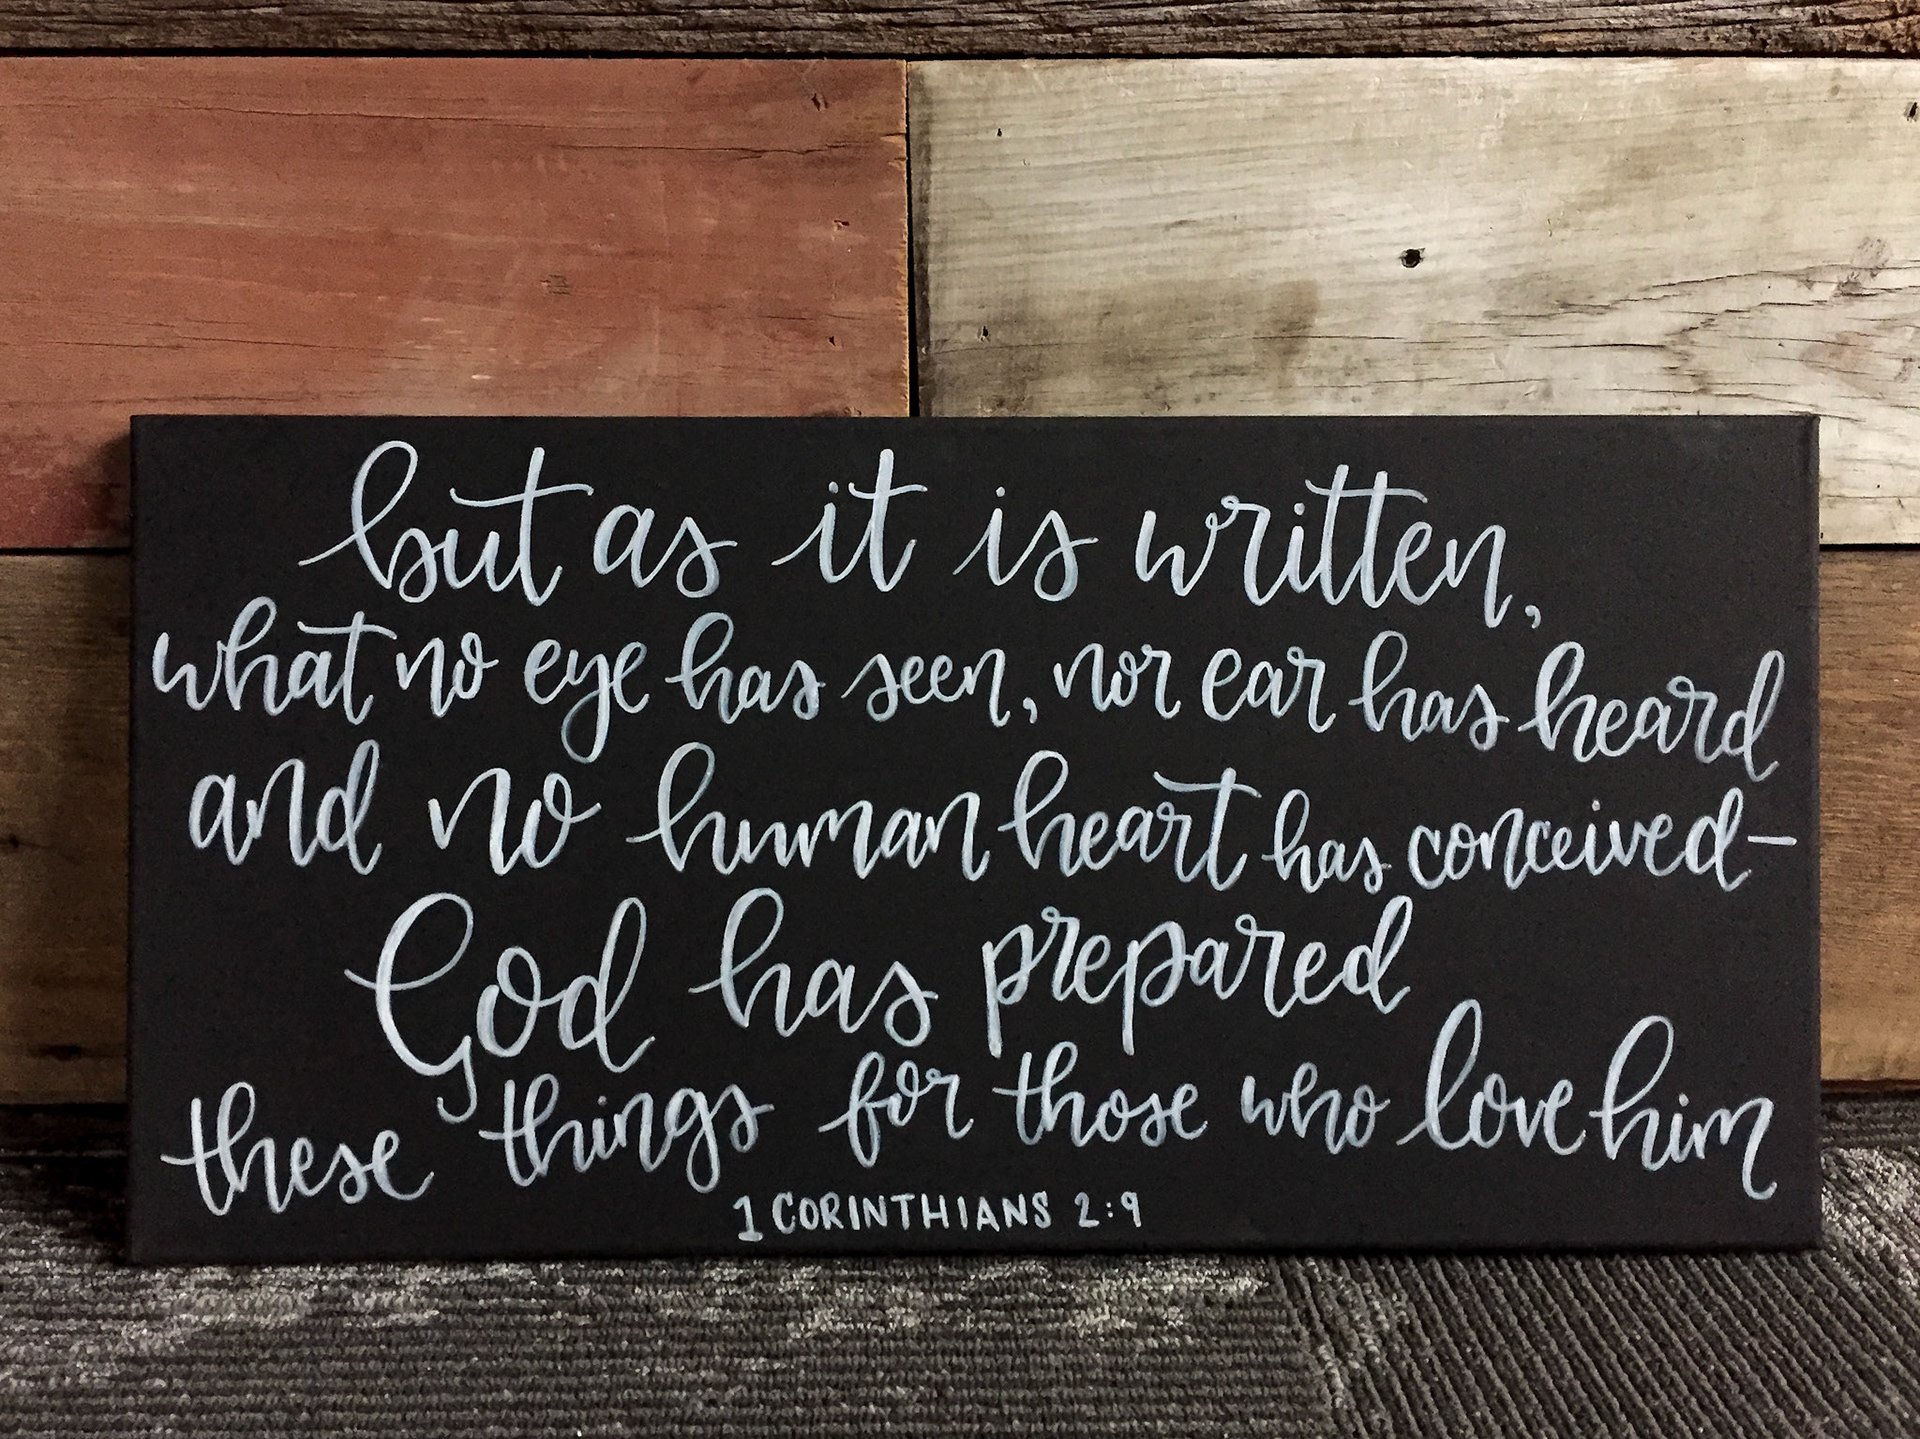 but as it is written,
what no eye has seen, nor ear has heard
and no human heart has conceived—
God has prepared
these things for those who love him
1 CORINTHIANS 2:9